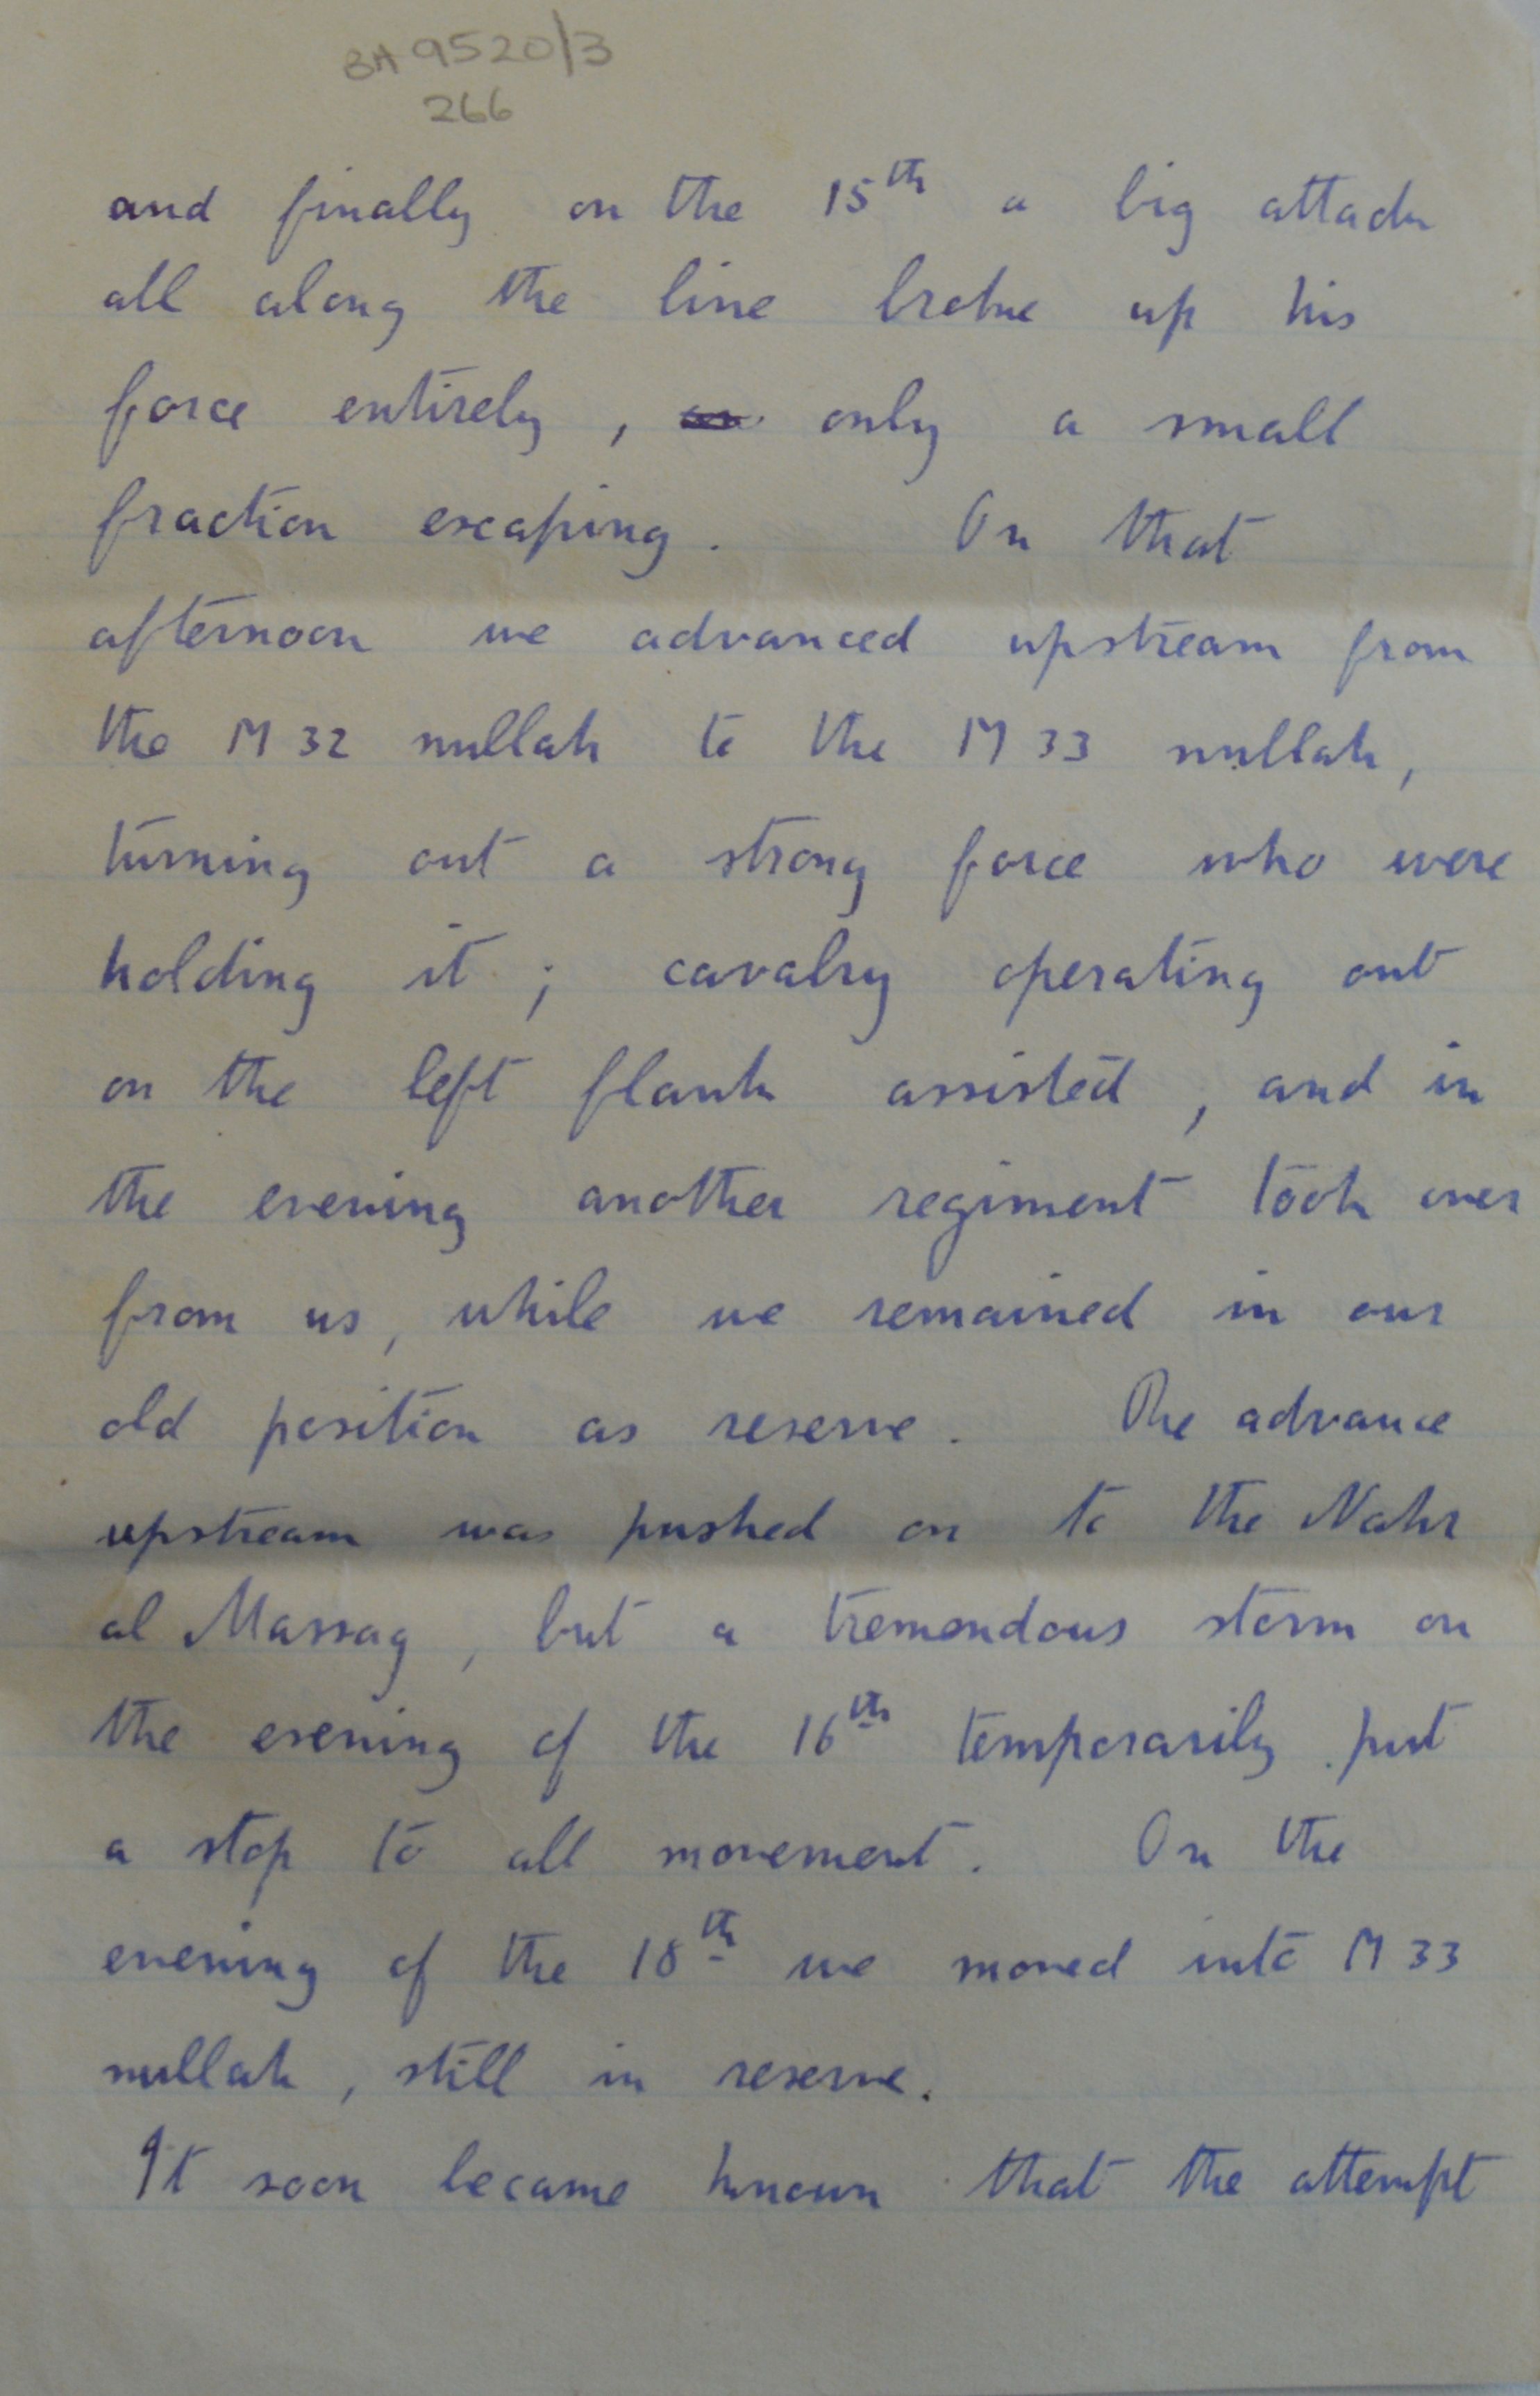 BA 9520/3
266
and finally on the 15th a big attack
all along the line broke up his
force entirely, only a small
fraction escaping. On that
afternoon we advanced upstream from
the M 32 nullah to the M 33 nullah,
turning out a strong force who were
holding it; cavalry operating out
on the left flank assisted, and in
the evening another regiment took over
from us, while we remained in our
old position as reserve. The advance
upstream was pushed on to the Nahr
al Massag, but a tremendous storm on
the evening of the 16th temporarily put
a stop to all movement. On the
evening of the 18th we moved into M 33
nullah, still in reserve.
It soon became known that the attempt